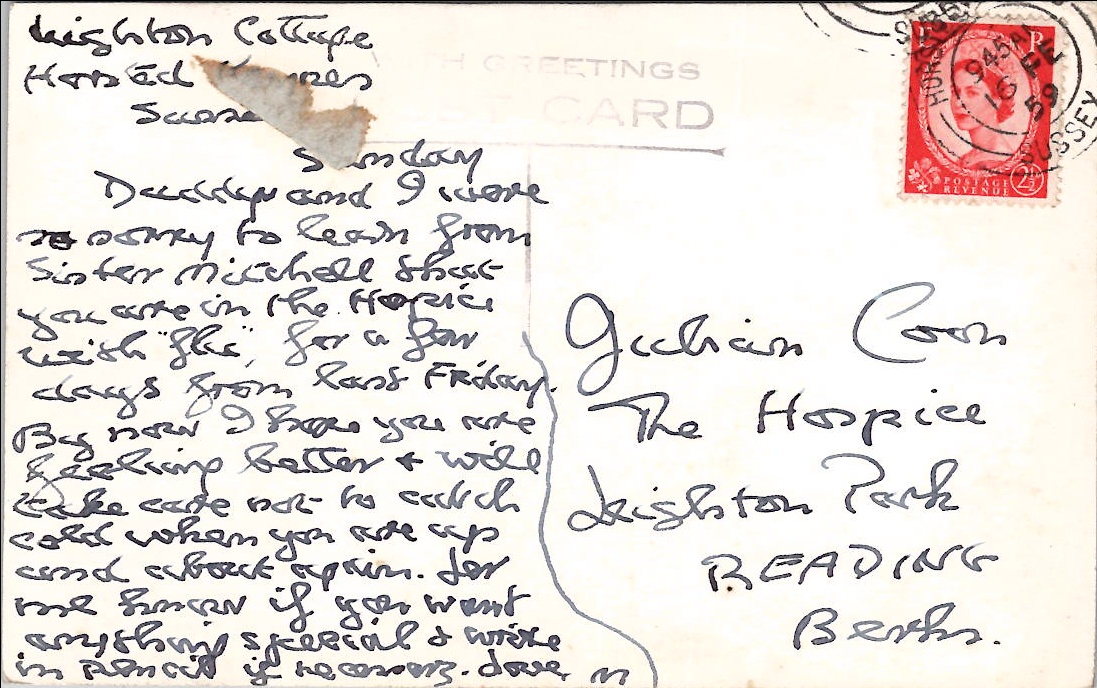 Leighton Cottage
Horsted Keynes
Sussex
Sunday
Daddy and I were
so sorry to learn from
Sister Mitchell that
you are in the Hospice
with "flu", for a few
days from last Friday.
By now I hope you are
feeling better + will
take care not to catch
cold when you are up
and about again. Let
me know if you want
anything special & write
in pencil if necessary. Love, M
WITH GREETINGS
POST CARD
HORSTED
SUSSEX
945AM
16 FE
59
SUSSEX
E R
POSTAGE
REVENUE
2½
Julian Coon
The Hospice
Leighton Park
READING
Berks.